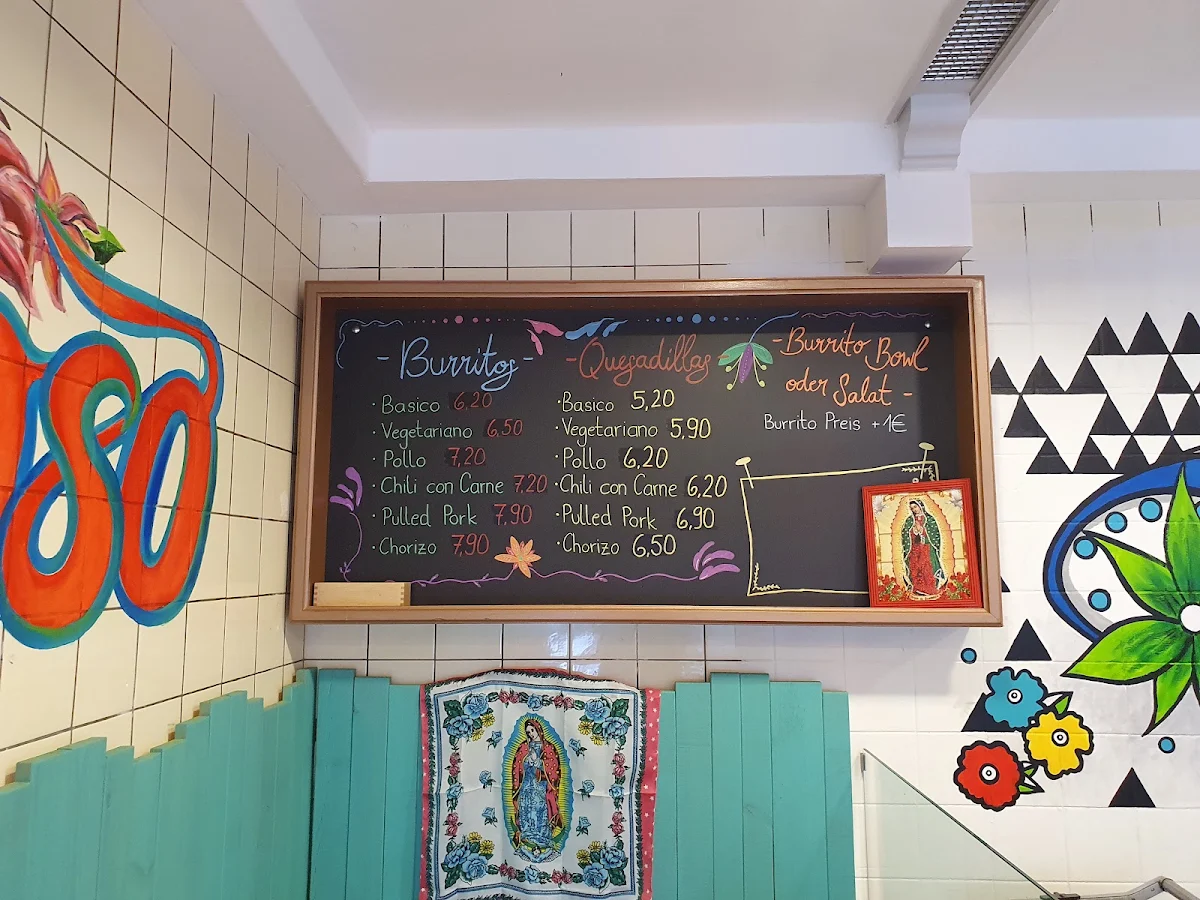 - Burritos -
· Basico 6,20
· Vegetariano 6,50
· Pollo 7,20
· Chili con Carne 7,20
· Pulled Pork 7,90
· Chorizo 7,90
- Quesadillas -
· Basico 5,20
· Vegetariano 5,90
· Pollo 6,20
· Chili con Carne 6,20
· Pulled Pork 6,90
· Chorizo 6,50
- Burrito Bowl
oder Salat -
Burrito Preis +1€